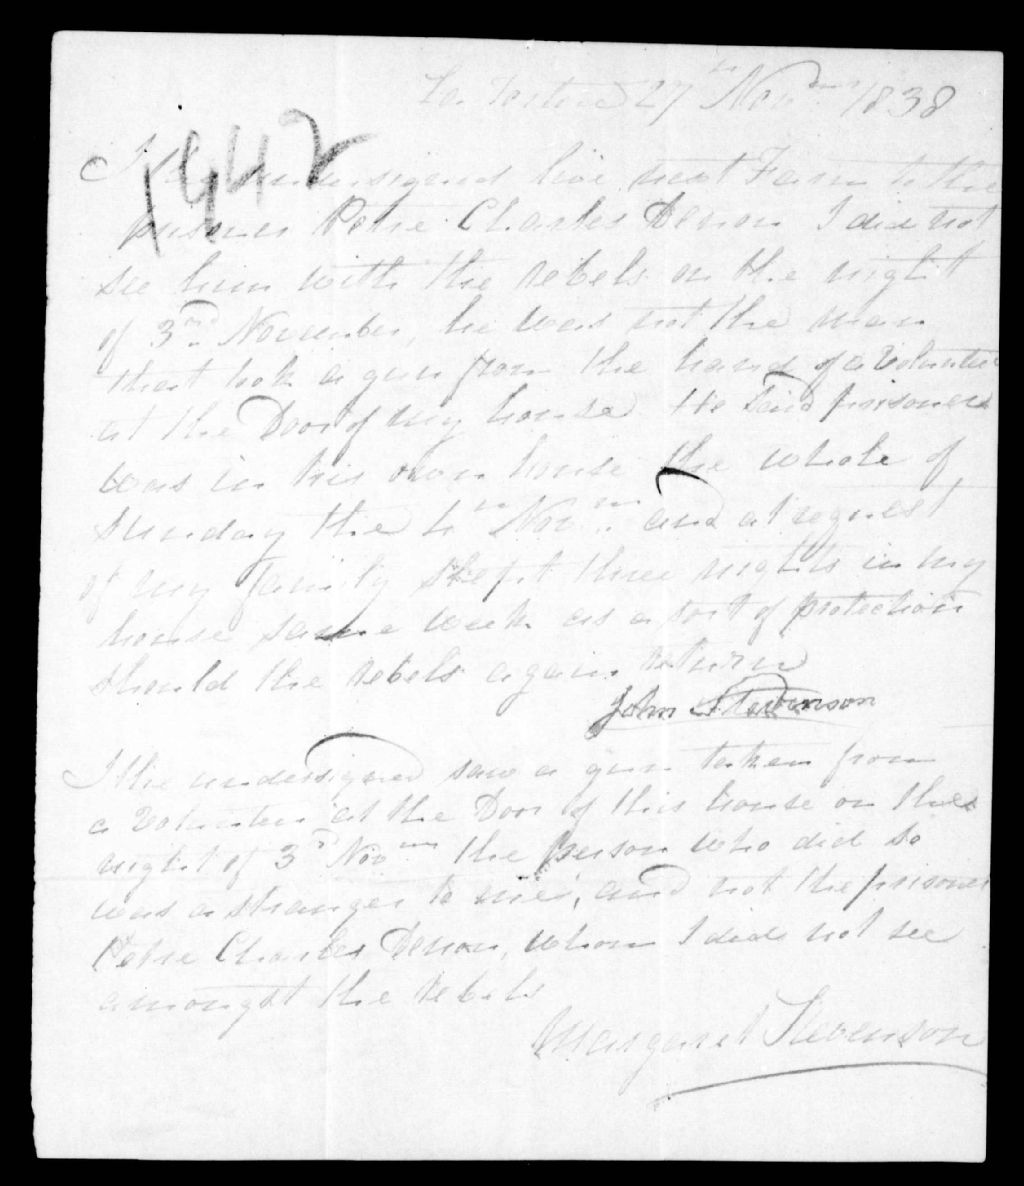 La Tortue 27th Novmr 1838
1942
I the undersigned live next Farm to the
prisoner Petre Charles Denon I did not
see him with the rebels on the night
of 3rd November, he was not the man
that took a gun from the hand of a Volunteer
at the Door of my house He Said prisoner
was in his own house the whole of
Sunday the 4th Novmr and at request
of my family Slept three nights in my
house same week as a sort of protection
should the rebels again return
John Stevenson
I the undersigned saw a gun taken from
a Volunteer at the Door of this house on the
night of 3d Novmr the person who did so
was a stranger to me, and not the prisoner
Petre Charles Denon, whom I did not see
amongst the rebels
Margaret Stevenson